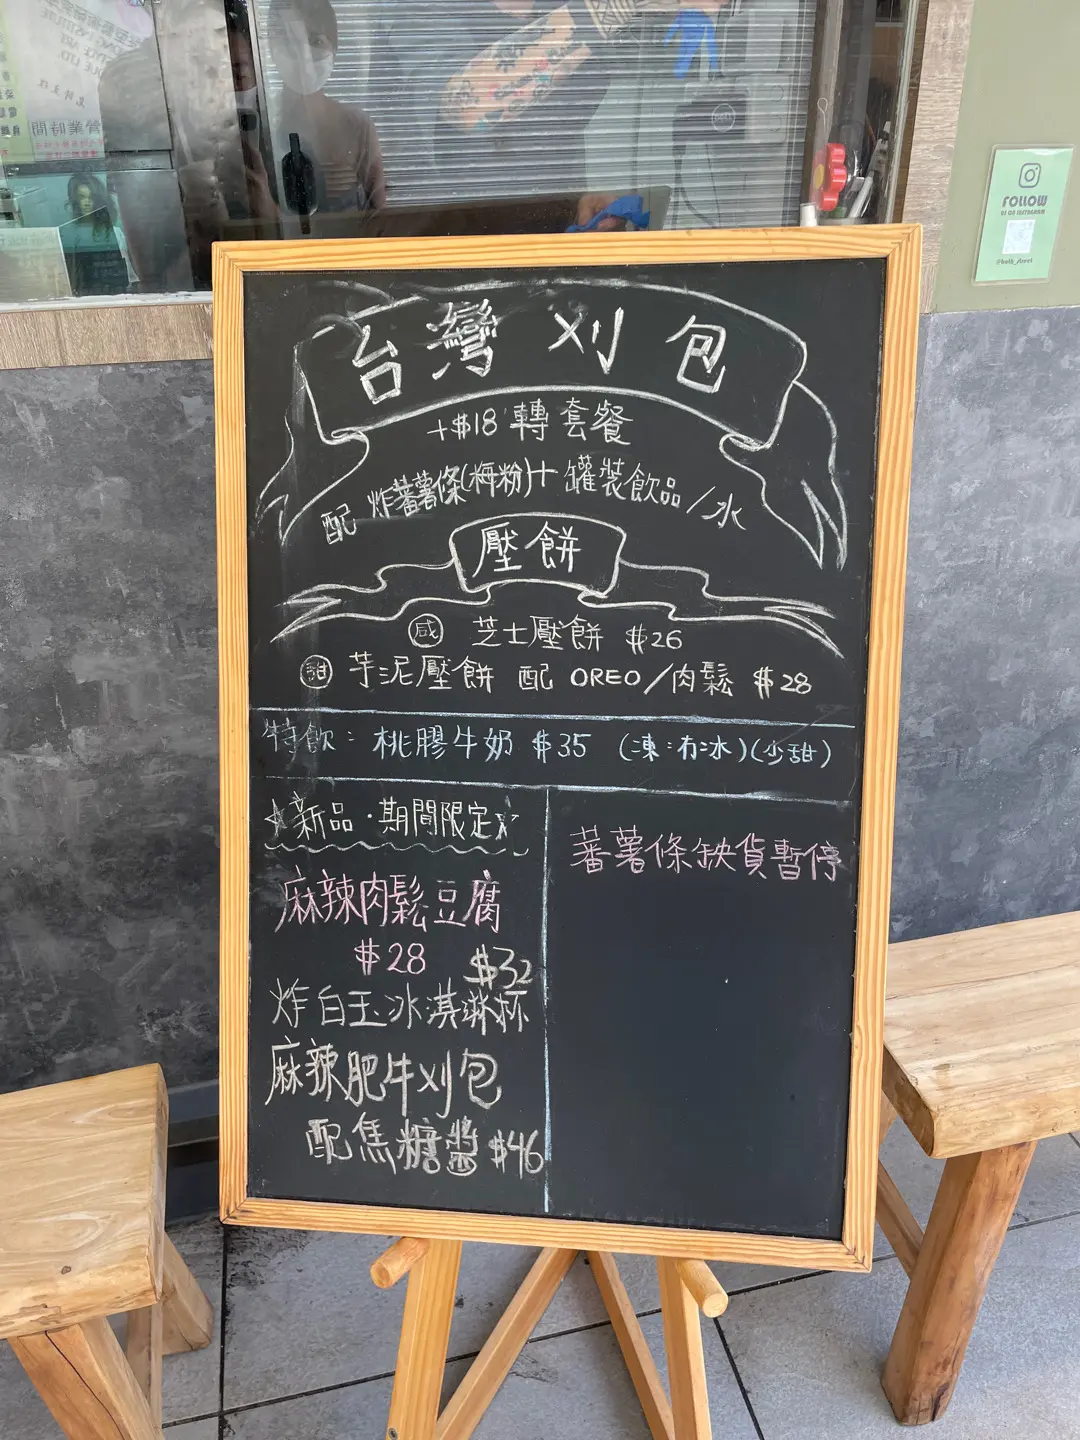 台灣刈包
+$18 轉套餐
配 炸蕃薯條(梅粉)+ 罐裝飲品/水
壓餅
咸 芝士壓餅 $26
甜 芋泥壓餅 配 OREO/肉鬆 $28
特飲: 桃膠牛奶 $35 (凍:冇冰)(少甜)
☆新品·期間限定☆
麻辣肉鬆豆腐
$28
$32
炸白玉冰淇淋杯
麻辣肥牛刈包
配焦糖醬 $46
蕃薯條缺貨暫停
FOLLOW
US ON INSTAGRAM
營業時間